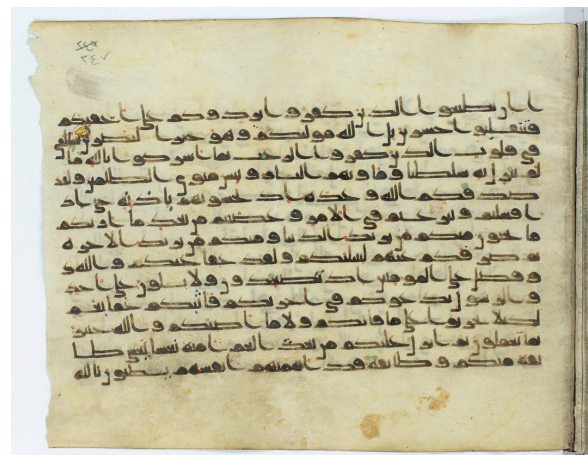 ٢٤٧
ا ان تطيعوا الذين كفروا يردوكم على اعقبكم
فتنقلبوا خسرين بل الله موليكم وهو خير النصرين سنلقي
في قلوب الذين كفروا الرعب بما اشركوا بالله ما
لم ينزل به سلطنا وماويهم النار وبئس مثوى الظلمين ولقد
صدقكم الله وعده اذ تحسونهم باذنه حتى اذ
ا فشلتم وتنزعتم في الامر وعصيتم من بعد ما اريكم
ما تحبون منكم من يريد الدنيا ومنكم من يريد الاخرة
ثم صرفكم عنهم ليبتليكم ولقد عفا عنكم والله ذ
و فضل على المومنين اذ تصعدون ولا تلون على احد
والرسول يدعوكم في اخريكم فاثبكم غما بغم
لكيلا تحزنوا على ما فاتكم ولا ما اصبكم والله خبير
بما تعملون ثم انزل عليكم من بعد الغم امنة نعاسا يغشى طا
ئفة منكم وطائفة قد اهمتهم انفسهم يظنون بالله